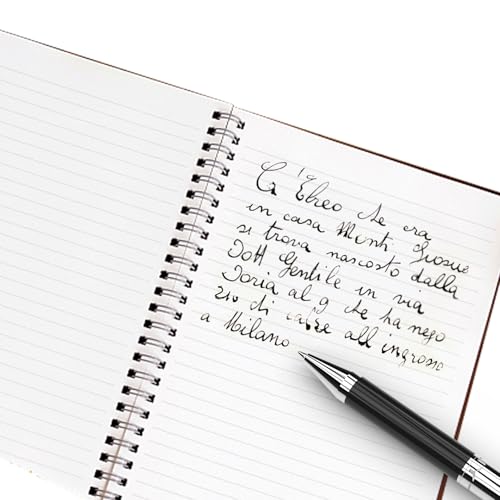 L'Ebreo che era
in casa Monti Giosue
si trova nascosto dalla
Dott Gentile in via
Doria al 9 che ha nego
zio di caffe all ingrosso
a Milano